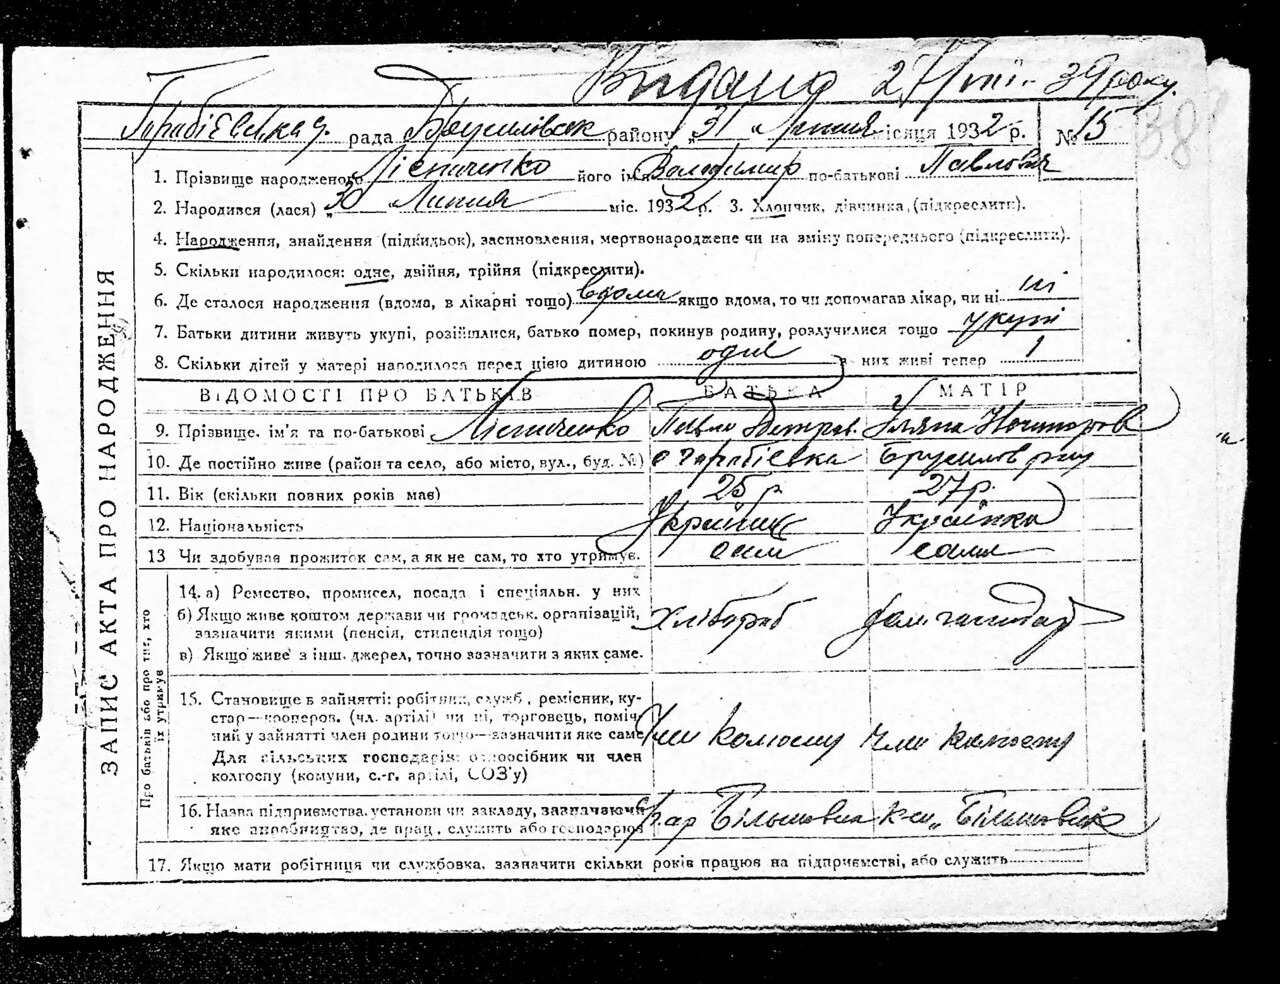 Видано 27/VIII - 39 року.
рада Брусилівськ району „31 „ Липня місяця 1932 р. № 15
38
ЗАПИС АКТА ПРО НАРОДЖЕННЯ
1. Прізвище народженого Лісниченко його ім'я Володимир по-батькові Павлович
2. Народився (лася) „30 Липня міс. 1932 р. 3. Хлопчик, дівчинка, (підкреслити).
4. Народження, знайдення (підкидьок), засиновлення, мертвонароджене чи на зміну попереднього (підкреслити).
5. Скільки народилося: одне, двійня, трійня (підкреслити).
6. Де сталося народження (вдома, в лікарні тощо) вдома якщо вдома, то чи допомагав лікар, чи ні ні
7. Батьки дитини живуть укупі, розійшлися, батько помер, покинув родину, розлучилися тощо укупі
8. Скільки дітей у матері народилося перед цією дитиною одне з них живі тепер 1
ВІДОМОСТІ ПРО БАТЬКІВ БАТЬКА МАТІР
9. Прізвище, ім'я та по-батькові Лісниченко Павло Петров. Уляна
10. Де постійно живе (район та село, або місто, вул., буд. №) с Брусилов р-ну
11. Вік (скільки повних років має) 25 р 27 р.
12. Національність Українец Українка
13 Чи здобував прожиток сам, а як не сам, то хто утримує. сам сама
Про батьків або про тих, хто їх утримує
14. а) Ремество, промисел, посада і спеціяльн. у них
б) Якщо живе коштом держави чи громадськ. організацій, Хлібороб дом. господар
зазначити якими (пенсія, стипендія тощо)
в) Якщо живе з інш. джерел, точно зазначити з яких саме.
15. Становище в зайнятті: робітник, служб., ремісник, ку-
стар—кооперов. (чл. артілі) чи ні, торговець, поміч-
ний у зайнятті член родини тощо—зазначити яке саме Член колгоспу Член колгоспу
Для сільських господарів: одноосібник чи член
колгоспу (комуни, с.-г. артілі, СОЗ'у)
16. Назва підприємства, установи чи закладу, зазначаючи
яке виробництво, де прац., служить або господарює Більшовик к-сп „Більшовик
17. Якщо мати робітниця чи службовка, зазначити скільки років працює на підприємстві, або служить